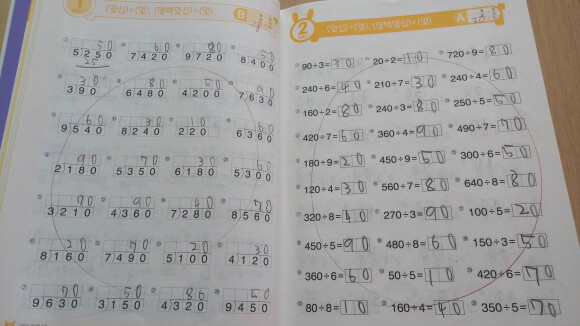 1
(몇십)÷(몇), (몇백몇십)÷(몇) B
50 60 80 50
5)250 7)420 9)720 8)400
25
30 80 50 90
3)90 6)480 4)200 7)630
60 30 10 60
9)540 8)240 2)20 6)360
90 70 30 60
2)180 5)350 6)180 5)300
70 90 40 70
3)210 4)360 7)280 8)560
20 70 20 30
8)160 7)490 5)100 4)120
70 50 80 50
9)630 3)150 4)320 9)450
2 (몇십)÷(몇), (몇백몇십)÷(몇) A
90÷3=30 20÷2=10 720÷9=80
240÷6=40 210÷7=30 240÷4=60
160÷2=80 240÷3=80 250÷5=50
420÷7=60 360÷4=90 490÷7=70
180÷9=20 450÷9=50 300÷6=50
120÷4=30 560÷7=80 640÷8=80
320÷8=40 270÷3=90 100÷5=20
450÷5=90 480÷8=60 150÷3=50
360÷6=60 50÷5=10 420÷6=70
80÷8=10 160÷4=40 350÷5=70